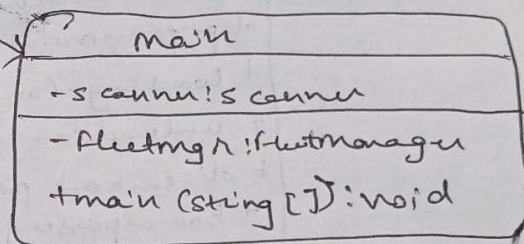 Main
-scanner:scanner
-fleetmgr:fleetmanager
+main(string[]):void